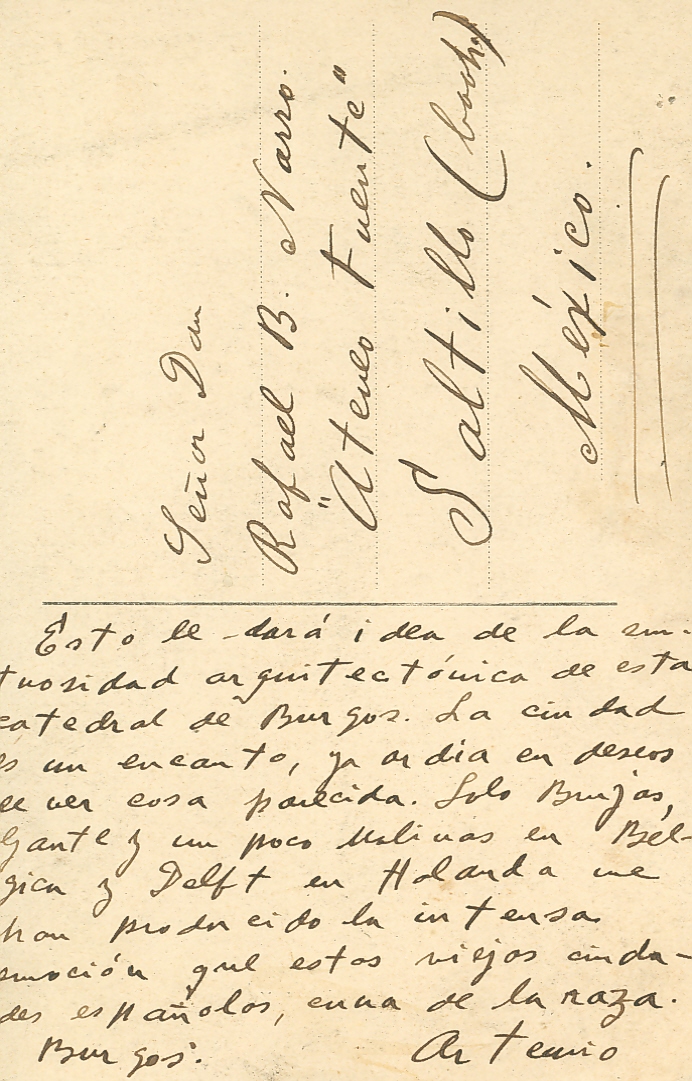 Señor Don
Rafael B. Narro.
"Ateneo Fuente"
Saltillo (Coah)
México.
Esto le dará idea de la sun-
tuosidad arquitectónica de esta
catedral de Burgos. La ciudad
es un encanto, ya ardia en deseos
de ver cosa parecida. Solo Brujas,
Gante y un poco Malinas en Bél-
gica y Delft en Holanda me
han producido la intensa
emoción que estas viejas ciuda-
des españolas, cuna de la raza.
Burgos. Artemio